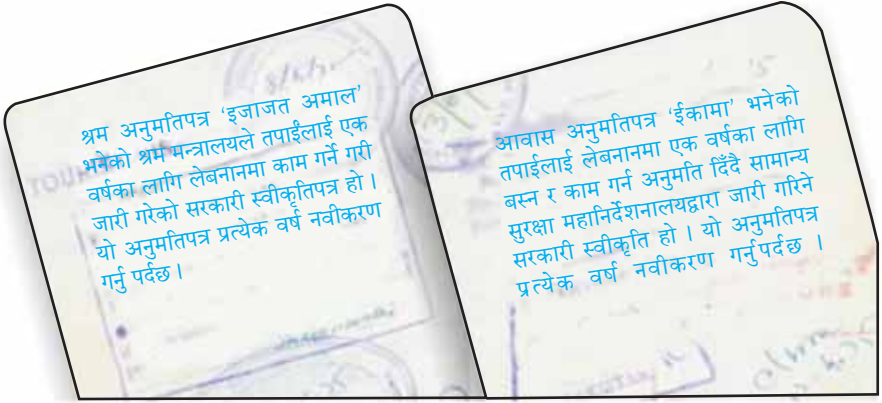 श्रम अनुमतिपत्र ‘इजाजत अमाल’
भनेको श्रम मन्त्रालयले तपाईंलाई एक
वर्षका लागि लेबनानमा काम गर्ने गरी
जारी गरेको सरकारी स्वीकृतिपत्र हो ।
यो अनुमतिपत्र प्रत्येक वर्ष नवीकरण
गर्नु पर्दछ ।
आवास अनुमतिपत्र ‘ईकामा’ भनेको
तपाईलाई लेबनानमा एक वर्षका लागि
बस्न र काम गर्न अनुमति दिँदै सामान्य
सुरक्षा महानिर्देशनालयद्वारा जारी गरिने
सरकारी स्वीकृति हो । यो अनुमतिपत्र
प्रत्येक वर्ष नवीकरण गर्नुपर्दछ ।